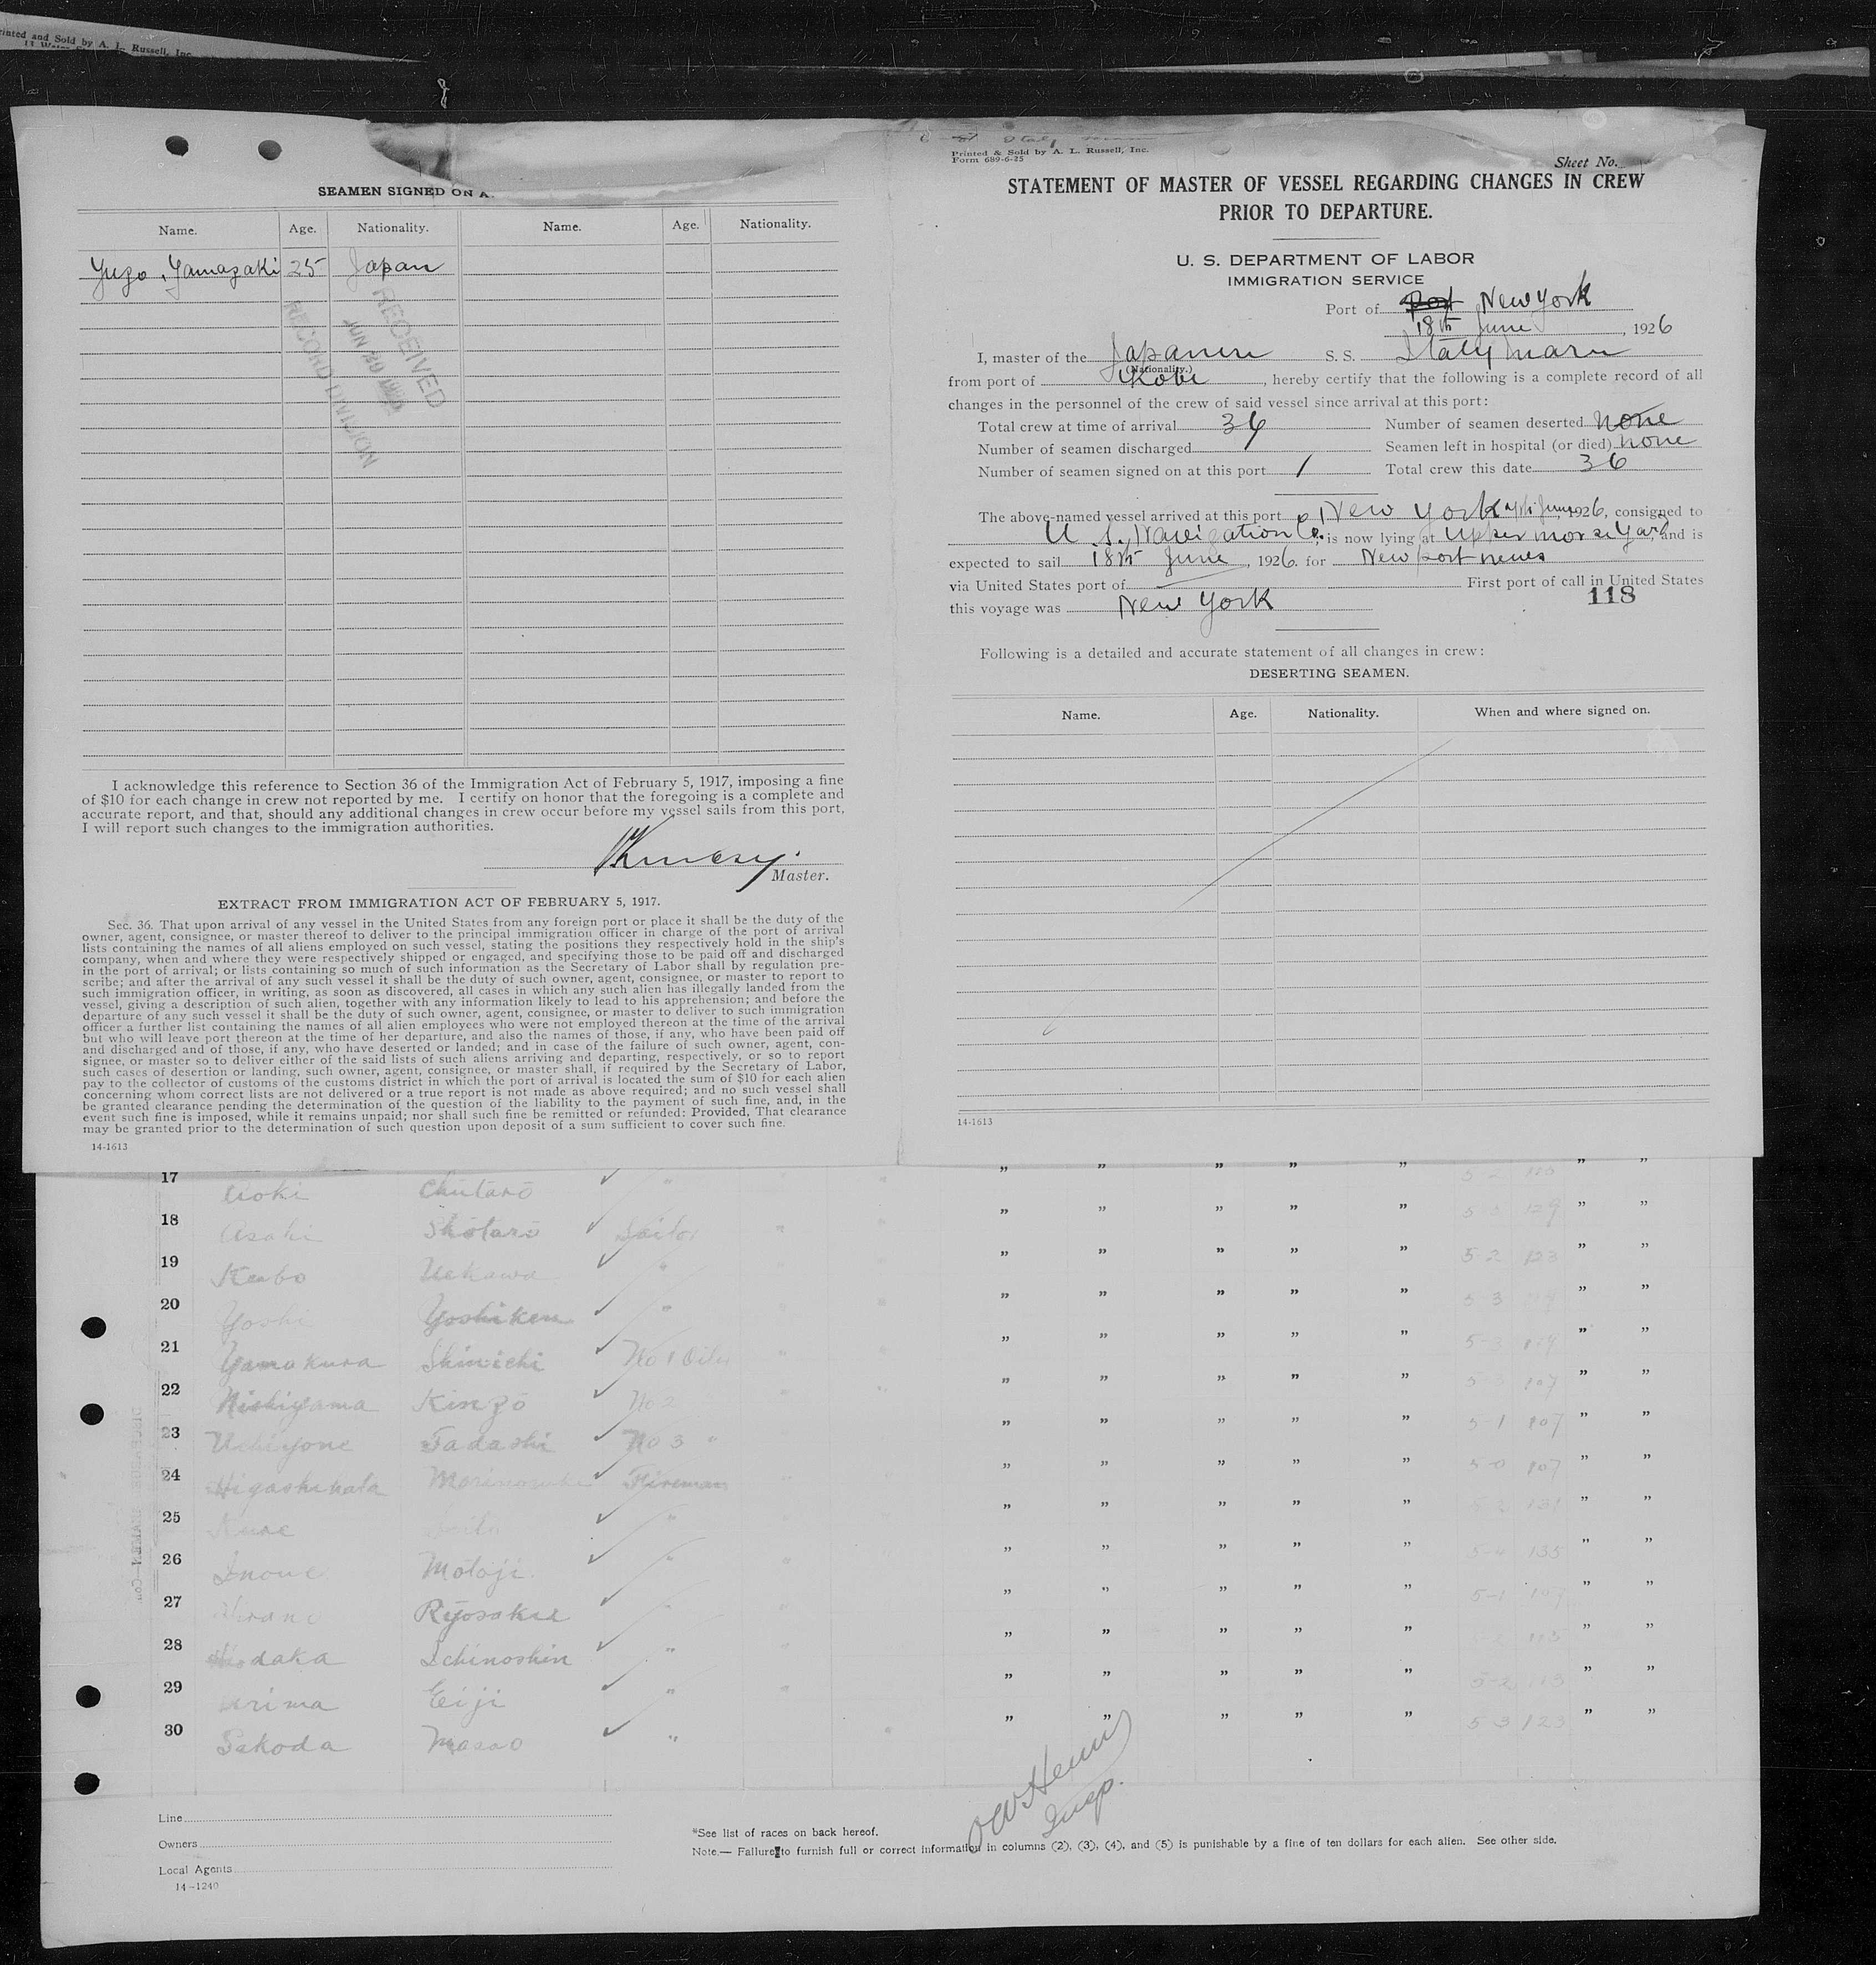 Printed and Sold by A. L. Russell, Inc.
SEAMEN SIGNED ON A
Name. Age. Nationality. Name. Age. Nationality.
Yugo Yamazaki 25 Japan
RECEIVED
JUN
RECORD DIVISION
I acknowledge this reference to Section 36 of the Immigration Act of February 5, 1917, imposing a fine
of $10 for each change in crew not reported by me. I certify on honor that the foregoing is a complete and
accurate report, and that, should any additional changes in crew occur before my vessel sails from this port,
I will report such changes to the immigration authorities.
Master.
EXTRACT FROM IMMIGRATION ACT OF FEBRUARY 5, 1917.
Sec. 36. That upon arrival of any vessel in the United States from any foreign port or place it shall be the duty of the
owner, agent, consignee, or master thereof to deliver to the principal immigration officer in charge of the port of arrival
lists containing the names of all aliens employed on such vessel, stating the positions they respectively hold in the ship's
company, when and where they were respectively shipped or engaged, and specifying those to be paid off and discharged
in the port of arrival; or lists containing so much of such information as the Secretary of Labor shall by regulation pre-
scribe; and after the arrival of any such vessel it shall be the duty of such owner, agent, consignee, or master to report to
such immigration officer, in writing, as soon as discovered, all cases in which any such alien has illegally landed from the
vessel, giving a description of such alien, together with any information likely to lead to his apprehension; and before the
departure of any such vessel it shall be the duty of such owner, agent, consignee, or master to deliver to such immigration
officer a further list containing the names of all alien employees who were not employed thereon at the time of the arrival
but who will leave port thereon at the time of her departure, and also the names of those, if any, who have been paid off
and discharged and of those, if any, who have deserted or landed; and in case of the failure of such owner, agent, con-
signee, or master so to deliver either of the said lists of such aliens arriving and departing, respectively, or so to report
such cases of desertion or landing, such owner, agent, consignee, or master shall, if required by the Secretary of Labor,
pay to the collector of customs of the customs district in which the port of arrival is located the sum of $10 for each alien
concerning whom correct lists are not delivered or a true report is not made as above required; and no such vessel shall
be granted clearance pending the determination of the question of the liability to the payment of such fine, and, in the
event such fine is imposed, while it remains unpaid; nor shall such fine be remitted or refunded: Provided, That clearance
may be granted prior to the determination of such question upon deposit of a sum sufficient to cover such fine.
14-1613
Printed & Sold by A. L. Russell, Inc.
Form 689-6-25
Sheet No.
STATEMENT OF MASTER OF VESSEL REGARDING CHANGES IN CREW
PRIOR TO DEPARTURE.
U. S. DEPARTMENT OF LABOR
IMMIGRATION SERVICE
Port of New York
18th June, 1926
I, master of the Japanese S. S. Italy Maru
(Nationality.)
from port of Kobe, hereby certify that the following is a complete record of all
changes in the personnel of the crew of said vessel since arrival at this port:
Total crew at time of arrival 36 Number of seamen deserted none
Number of seamen discharged Seamen left in hospital (or died) none
Number of seamen signed on at this port 1 Total crew this date 36
The above-named vessel arrived at this port New York June, 1926, consigned to
U. S. Navigation Co., is now lying at Upper morse Yard, and is
expected to sail 18th June, 1926. for Newport news
via United States port of First port of call in United States
this voyage was New York
118
Following is a detailed and accurate statement of all changes in crew:
DESERTING SEAMEN.
Name. Age. Nationality. When and where signed on.
14-1613
17 Aoki Chūtarō " " " " " " " "
18 Asahi Shōtarō Sailor " " " " " 129 " "
19 Kubo Uekawa " " " " " " 5-2 123 " "
20 Yoshi Yoshiken " " " " " " 5-3 " "
21 Yamakura Shinichi No 1 Oiler " " " " " 5-3 " "
22 Nishiyama Kinzō No 2 " " " " " 107 " "
23 Uchiyone Tadashi No 3 " " " " " " 5-1 107 " "
24 Higashikata Fireman " " " " " 5-0 107 " "
25 " " " " " " 5-2 131 " "
26 Inoue Motoji " " " " " " 5-4 135 " "
27 Ryosaku " " " " " 5-1 107 " "
28 Hidaka Ichinoshin " " " " " " 113 " "
29 Arima Eiji " " " " " " 5-2 113 " "
30 Sakoda Masao " " " " " " 5-3 123 " "
OW Henry
Insp.
Line
Owners
Local Agents
14-1240
*See list of races on back hereof.
Note.— Failure to furnish full or correct information in columns (2), (3), (4), and (5) is punishable by a fine of ten dollars for each alien. See other side.